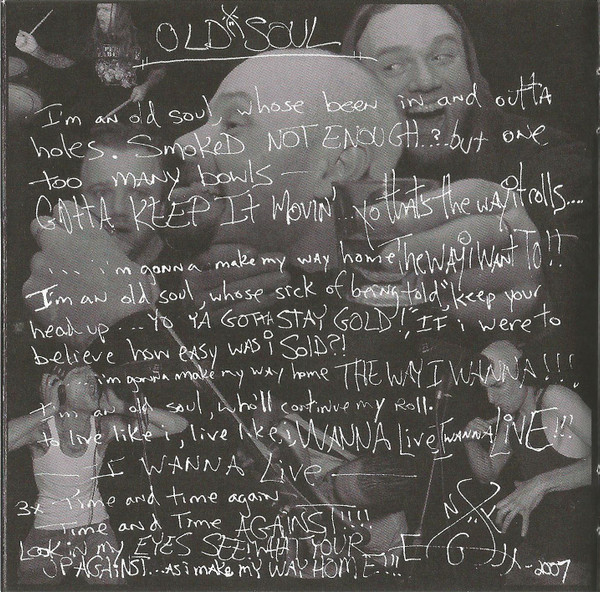 OLD SOUL
I'm an old soul, whose been in and outta
holes. Smoked NOT ENOUGH..?.but one
too many bowls —
GOTTA KEEP It MOVIN'...yo that's the way it rolls....
... i'm gonna make my way home The WAY i WANT To!!
I'm an old soul, whose sick of being told, "keep your
head up ... YO YA GOTTA STAY GOLD!", IF i were to
believe how easy was i Sold?!
... i'm gonna make my way home THE WAY I WANNA!!!
I'm an old soul, who'll continue my roll.
to live like i, live like i WANNA Live, I WANNA LiVE!!!
— I WANNA Live —
3x - Time and time again
Time and Time AGAINST!!!!
Look in my EYES SEE WHAT YOUR
UP AGAINST...AS i make MY WAY HOME!!!
2007